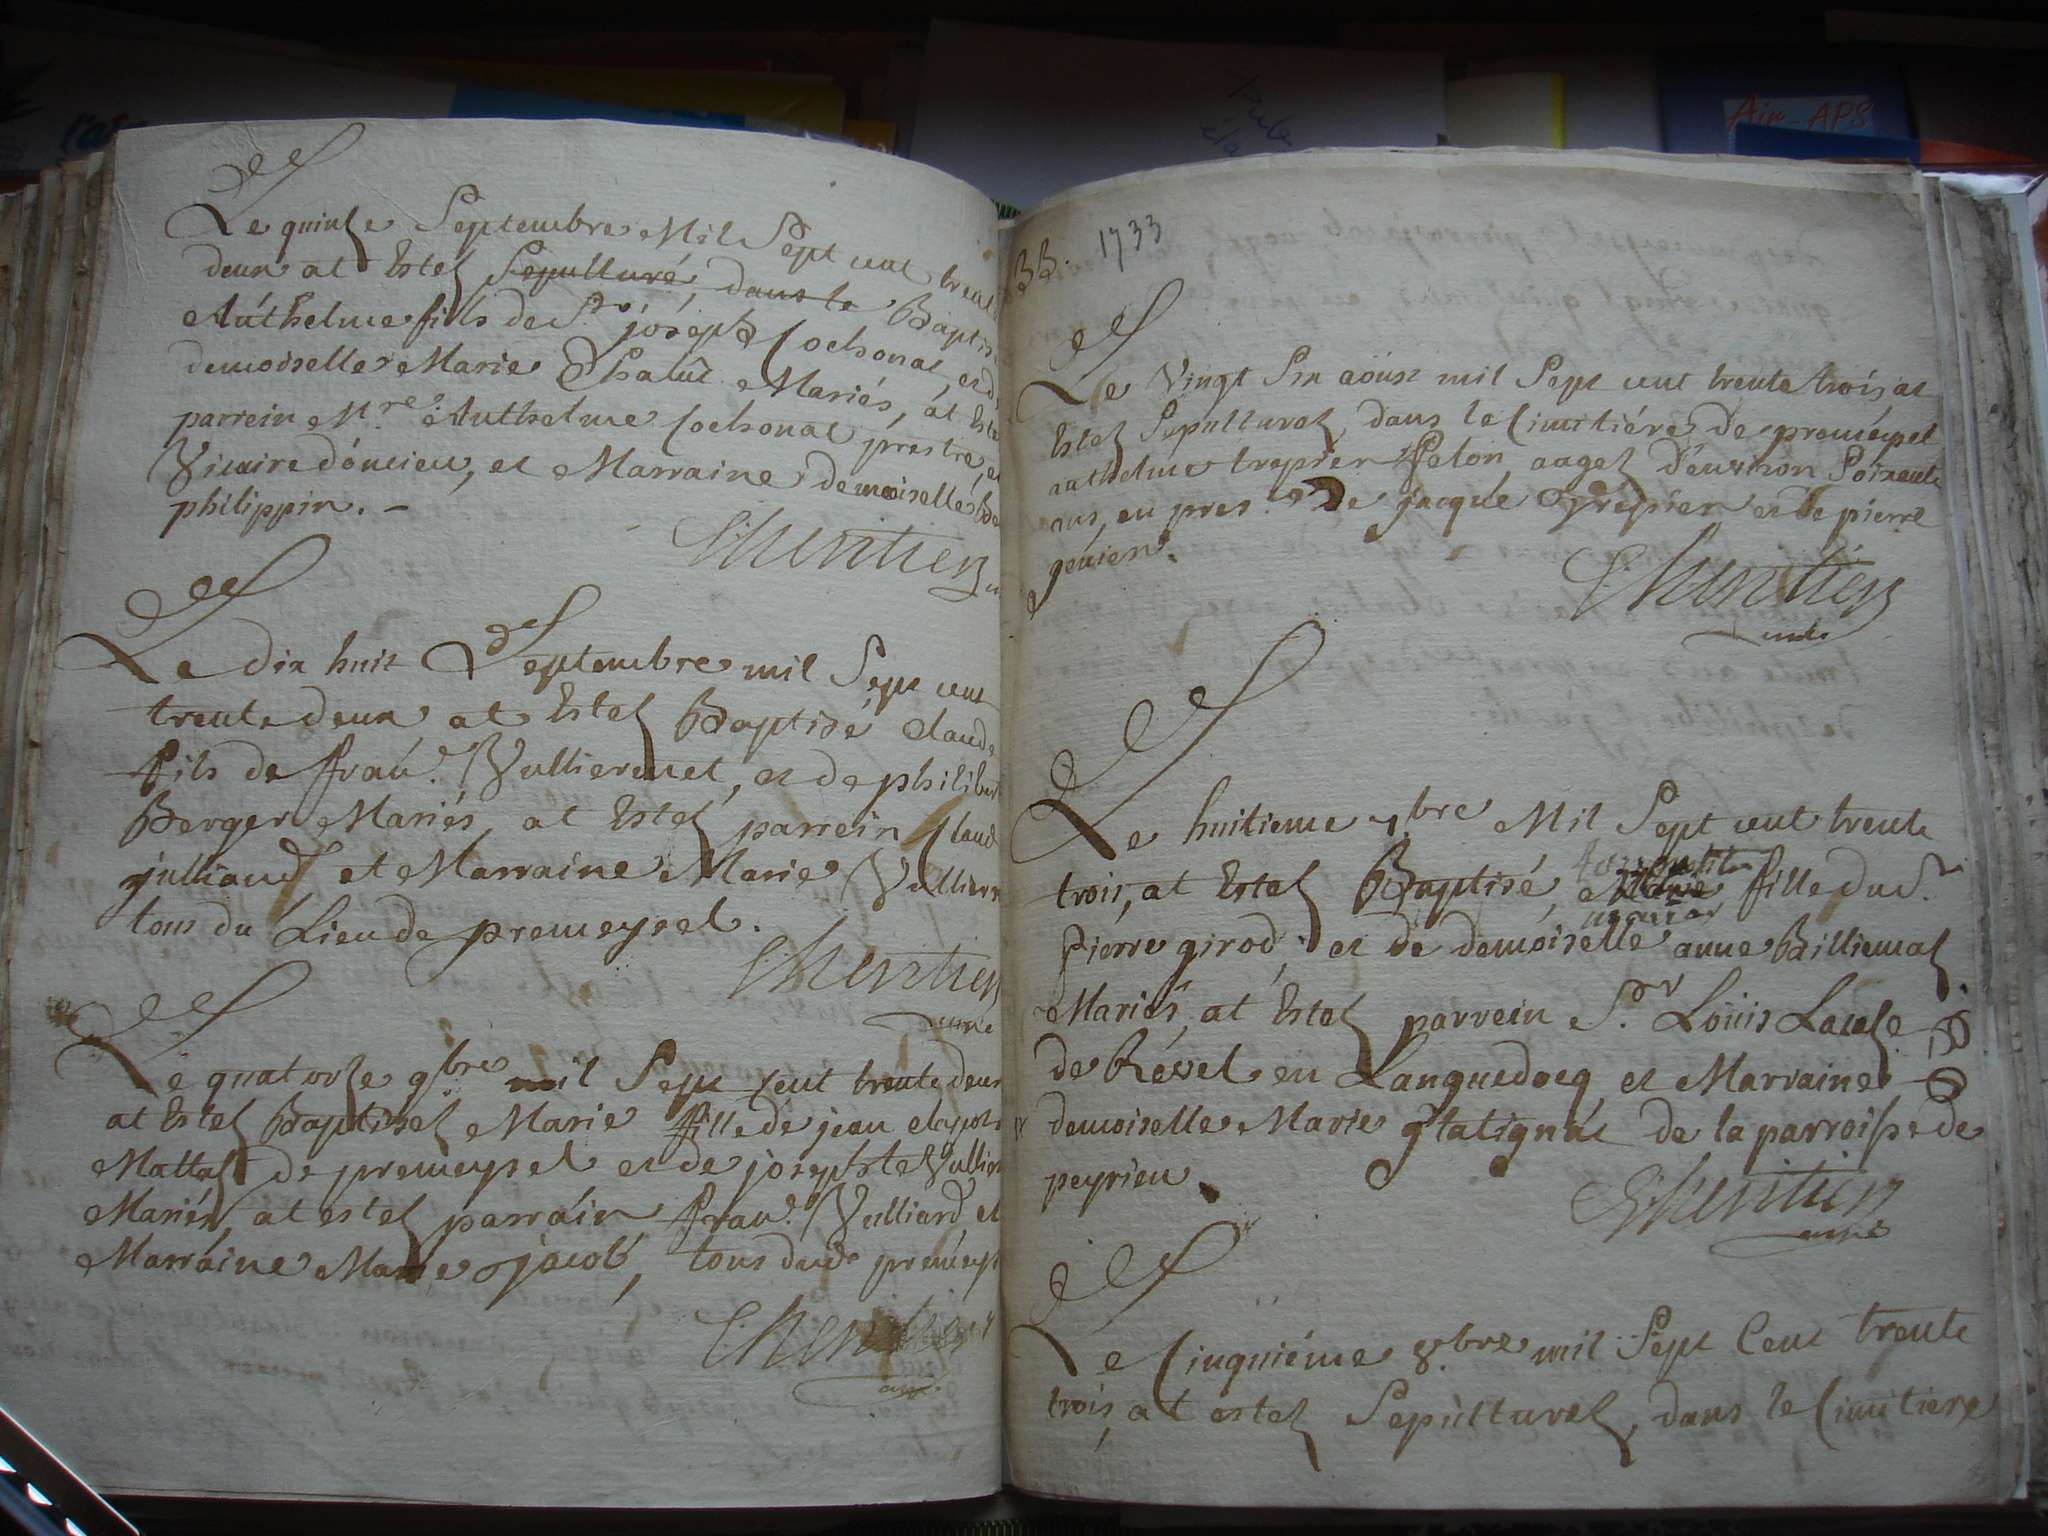 Le quinze Septembre Mil Sept cent trent
deux at Estez Sepulturé, dans le Baptisé
Anthelme fils de Sr. joseph Cochonat, et d
demoiselle Marie Mariés, at Esté
parrein Mre. Anthelme Cochonat prestre, et
Vicaire d'oncieu, et Marraine demoiselle Be
philippin. -
Charvtier
Le dix huit Septembre mil Sept cent
trente deux, at Estez Baptisé Claude
fils de fran. Vulliermet, et de philibert
Berger Mariés, at Estez parrein Claud
julliand et Marraine Marie Vullierm
tous du Lieu de premeysel.
curé
Le quatorze 9bre mil Sept Cent trente deux
at Estez Baptisez Marie fille de jean
Mattaz de premeysel et de josephte Vullier
Mariés, at estez parrain fran. Vulliard et
Marraine Marie jacob, tous dud. premeys
33. 1733
Le Vingt Six aoust mil Sept cent trente trois at
Estez Sepulturez, dans le Cimitiére de preméysel
anthelme trepier Pelon aagez d'environ Soixante
ans, en pres. De jacque trepier et de pierre
genien.
curé
Le huitieme 7bre Mil Sept cent trente
trois, at Estez Baptisé, Marie fille du Sr.
Pierre girod, et de demoiselle anne Billiemaz
Mariés, at Estez parrein Sr. Loüis
de Révél en Languedocq et Marraine
demoiselle Marie de la parroisse de
peyrieu.
curé
Le Cinquiéme 8bre mil Sept Cent trente
trois, at estez Sepulturez, dans le Cimitiere
Ain-APS